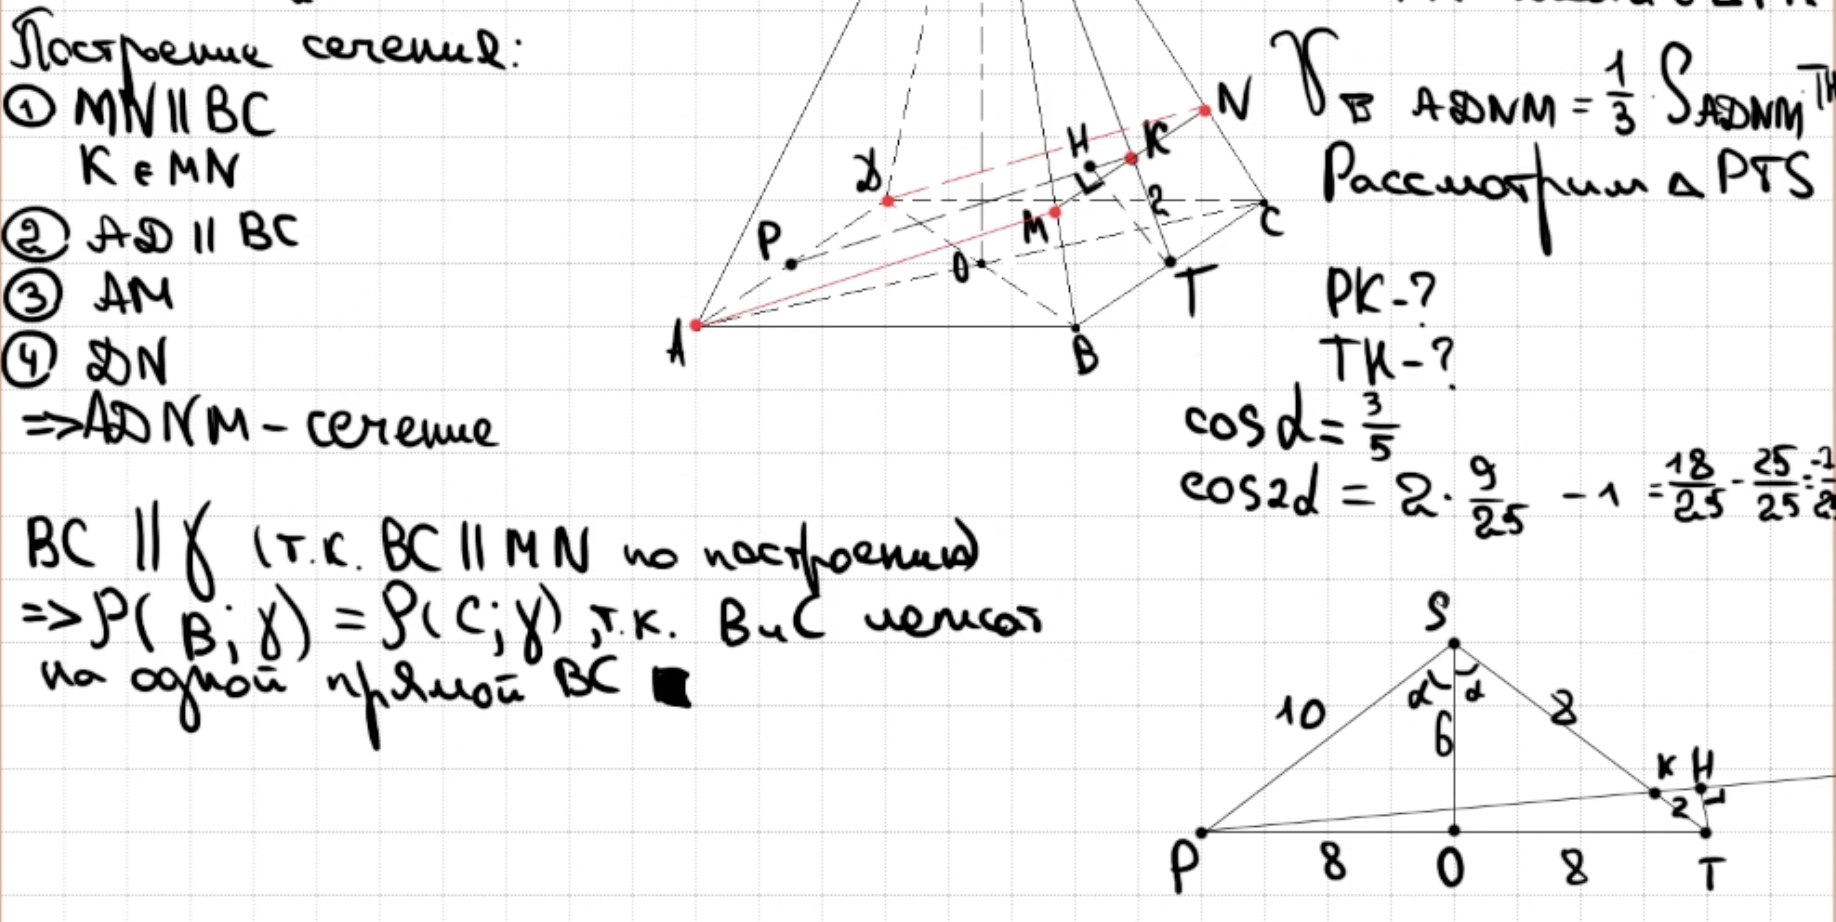 Построение сечения:
① MN || BC
K ∈ MN
② AD || BC
③ AM
④ DN
=> ADNM - сечение
BC || γ (т.к. BC || MN по построению)
=> ρ(B; γ) = ρ(C; γ), т.к. B и C лежат
на одной прямой BC ■
N
H
K
D
L
2
M
C
P
O
T
A
B
V B ADNM = 1/3 · S ADNM · TH
Рассмотрим △ PTS
PK - ?
TH - ?
cos α = 3/5
cos 2α = 2 · 9/25 - 1 = 18/25 - 25/25 =
S
α α
10
6
8
K H
2
P 8 O 8 T